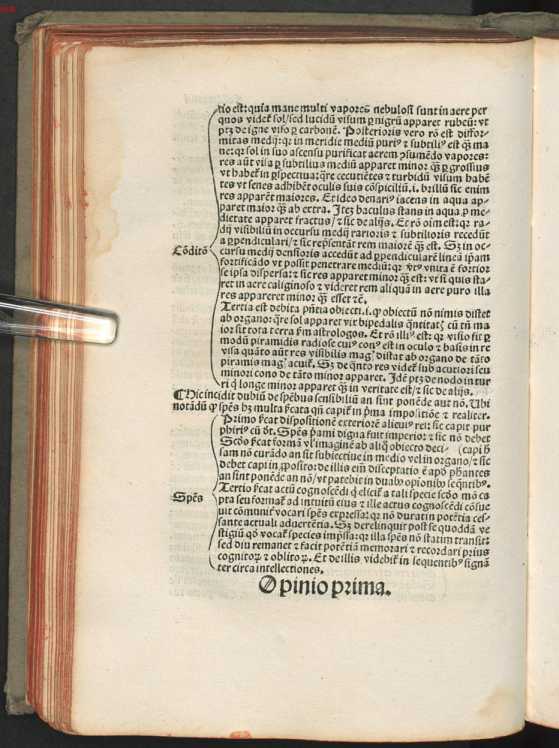 tio est: quia mane multi vapores nebulosi sunt in aere per
quos videt̃ sol/ sed lucidũ visum ꝑ nigrũ apparet rubeũ: vt
ptȝ de igne viso ꝑ carbonẽ. Posterioris vero rõ est diffor-
mitas medij: qꝛ in meridie mediũ puriꝰ ⁊ subtiliꝰ est q̃ȝ ma
ne: qꝛ sol in suo ascensu purificat aerem ↄsumẽdo vapores:
res aũt visa ꝑ subtilius mediũ apparet minor q̃ȝ ꝑ grossius
vt habet̃ in ꝑspectiua: q̃re cecutiẽtes ⁊ turbidũ visum habẽ
tes vt senes adhibẽt oculis suis cõspiciliũ .i. brillũ sic enim
res apparẽt maiores. Et ideo denariꝰ iacens in aqua ap-
paret maior q̃ȝ ab extra. Itẽȝ baculus stans in aqua ꝑ me-
dietatẽ apparet fractus/ ⁊ sic de alijs. Et rõ oim est: qꝛ ra-
dij visibiliũ in occursu medij rarioris ⁊ subtilioris recedũt
a ꝑpendiculari/ ⁊ sic rep̃sentãt rem maiorẽ q̃ȝ est. Sȝ in oc-
Cõditõ
cursu medij densioris accedũt ad ꝑpendicularẽ lineã ip̃am
fortificãdo vt possit penetrare mediũ: qꝛ virtꝰ vnita ẽ fortior
se ipsa dispersa: ⁊ sic res apparet minor q̃ȝ est: vt si quis sta-
ret in aere caliginoso ⁊ videret rem aliquã in aere puro illa
res appareret minor q̃ȝ esset ⁊c̃.
Tertia est debita p̃ntia obiecti .i. ꝙ obiectũ nõ nimis distet
ab organo: q̃re sol apparet vix bipedalis q̃ntitatꝭ cũ tñ ma
ior sit tota terra ẽm astrologos. Et rõ illiꝰ est: qꝛ visio fit ꝑ
modũ piramidis radiose cuiꝰ conꝰ est in oculo ⁊ basis in re
visa quãto aũt res visibilis magꝭ distat ab organo de tãto
piramis magꝭ acuit̃. Sȝ de q̃nto res videt̃ sub acutiori seu
minori cono de tãto minor apparet. Idẽ ptȝ de nodo in tur
ri q̃ longe minor apparet q̃ȝ in veritate est/ ⁊ sic de alijs.
¶ Hic incidit dubiũ de spẽbus sensibiliũ an sint ponẽde aut nõ. Ubi
notãdũ ꝙ spẽs hȝ multa ẜcata qñ capit̃ in p̃ma impositiõe ⁊ realiter.
Primo ẜcat dispositionẽ exteriorẽ alicuiꝰ rei: sic capit pur
phiriꝰ cũ dȓ. Spẽs p̃ami digna fuit imperio: ⁊ sic nõ debet
Scõo ẜcat formã vl̓ imaginẽ ab aliq̃ obiecto deci- (capi h̓
sam nõ curãdo an sit subiectiue in medio vel in organo/ ⁊ sic
debet capi in ꝓposito: de illis eĩ disceptatio ẽ apõ p̃hantes
an sint ponẽde an nõ/ vt patebit in duabꝰ opioniꝰ seq̃ntibꝰ.
Tertio ẜcat actũ cognoscẽdi q̃ elicit̃ a tali specie scõo mõ ca
Spẽs
pta seu format̃ ad intuitũ eius ⁊ ille actus cognoscẽdi cõsue
uit cõmunit̃ vocari spẽs exp̃ssa: qꝛ nõ durat in potẽtia ces-
sante actuali aduertẽtia. Sȝ derelinquit post se quoddã ve
stigiũ qõ vocat̃ species imp̃ssa: qꝛ illa spẽs nõ statim transit:
sed diu remanet ⁊ facit potẽtiã memorari ⁊ recordari prius
cognitoꝝ ⁊ oblitoꝝ. Et de illis videbit̃ in sequentibꝰ signã
ter circa intellectiones.
Opinio prima.